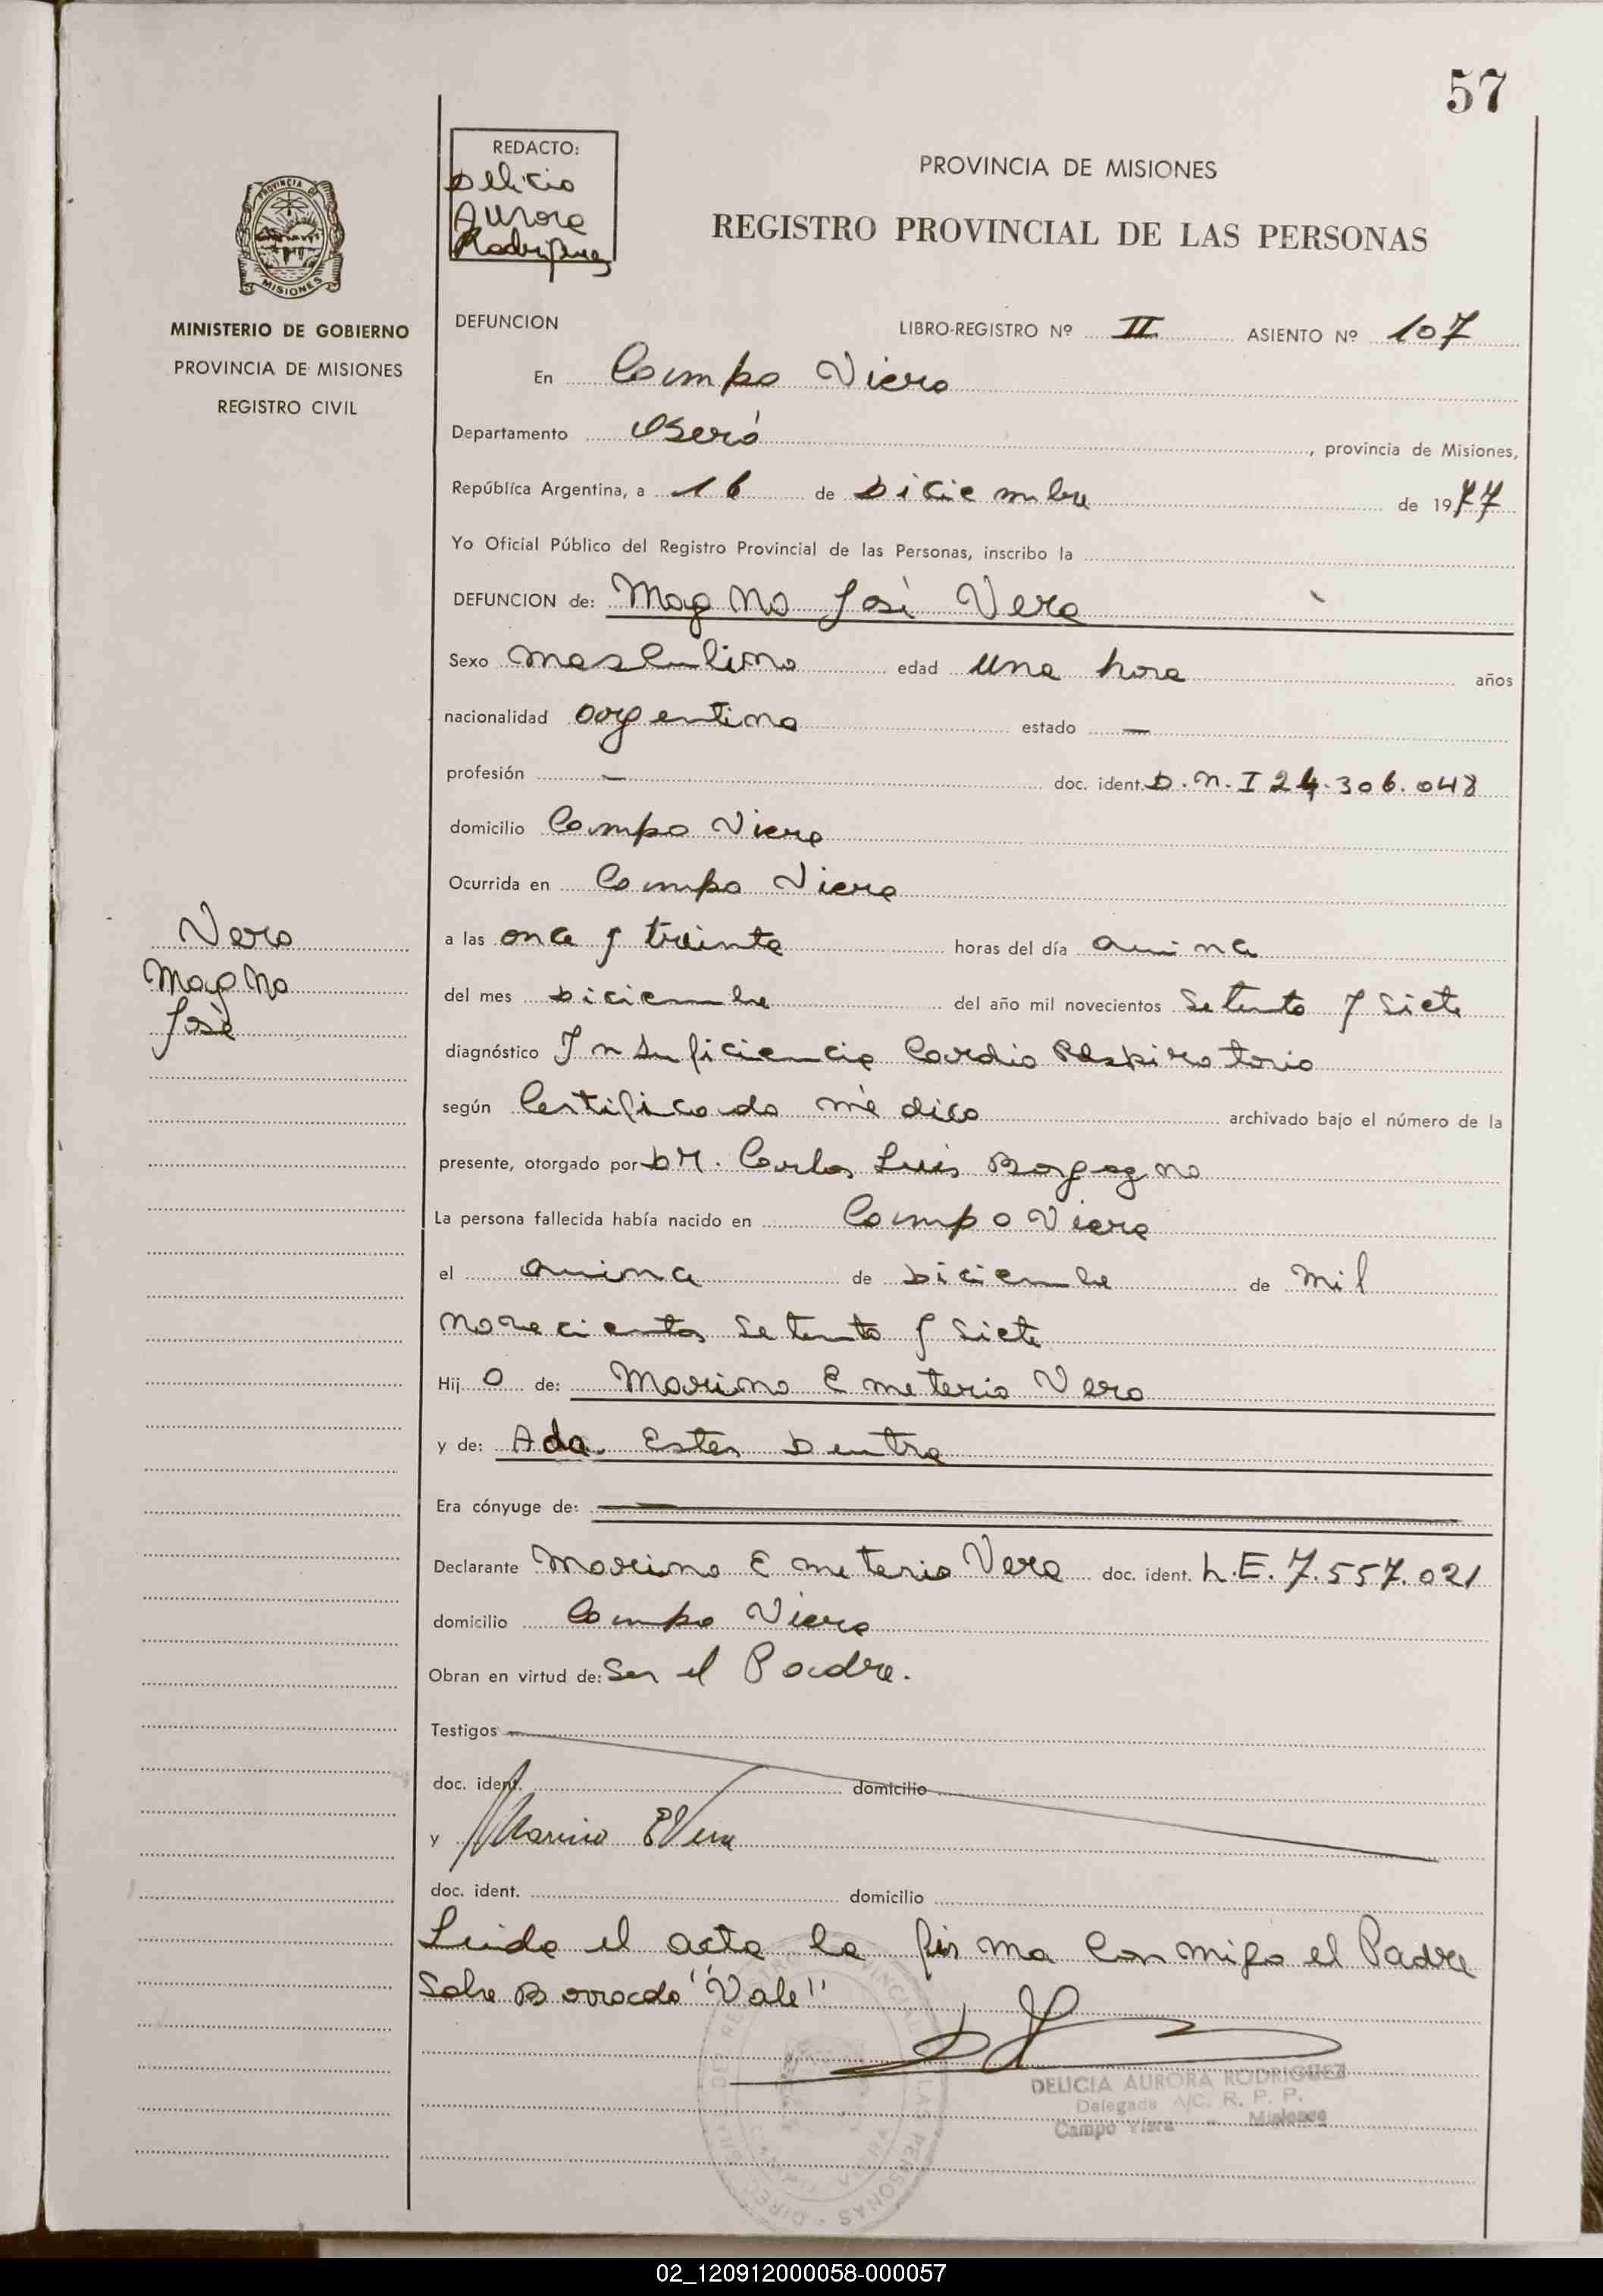 57
REDACTO:
Delicia
Aurora
Rodriguez
PROVINCIA DE MISIONES
REGISTRO PROVINCIAL DE LAS PERSONAS
PROVINCIA DE
MISIONES
MINISTERIO DE GOBIERNO
PROVINCIA DE MISIONES
REGISTRO CIVIL
DEFUNCION LIBRO-REGISTRO Nº II ASIENTO Nº 107
En Campo Viera
Departamento Oberá, provincia de Misiones,
República Argentina, a 16 de Diciembre de 1977
Yo Oficial Público del Registro Provincial de las Personas, inscribo la
DEFUNCION de: Magno José Vera
Sexo masculino edad una hora años
nacionalidad argentina estado —
profesión — doc. ident. D.N.I 24.306.048
domicilio Campo Viera
Ocurrida en Campo Viera
a las once y treinta horas del día quince
del mes Diciembre del año mil novecientos Setenta y Siete
diagnóstico Insuficiencia Cardio Respiratoria
según Certificado médico archivado bajo el número de la
presente, otorgado por DR. Carlos Luis Borgogno
La persona fallecida había nacido en Campo Viera
el quince de Diciembre de Mil
novecientos Setenta y Siete
Hijo de: Marino Emeterio Vera
y de: Ada Ester Dentra
Era cónyuge de:
Declarante Marino Emeterio Vera doc. ident. L.E. 7.557.021
domicilio Campo Viera
Obran en virtud de: Ser el Padre.
Testigos
doc. ident. domicilio
y Marino E Vera
doc. ident. domicilio
Leida el acta la firma conmigo el Padre
Sobre Borrado "Vale"
DELICIA AURORA RODRIGUEZ
Delegada A/C. R. P. P.
Campo Viera - Misiones
Vera
Magno
José
02_120912000058-000057